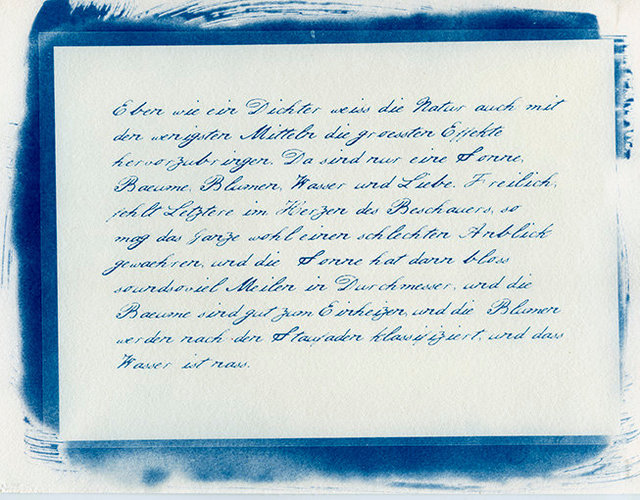 Eben wie ein Dichter weiss die Natur auch mit
den wenigsten Mitteln die groessten Effekte
hervorzubringen. Da sind nur eine Sonne,
Baeume, Blumen, Wasser und Liebe. Freilich,
fehlt Letztere im Herzen des Beschauers, so
mag das Ganze wohl einen schlechten Anblick
gewaehren, und die Sonne hat dann bloss
soundsoviel Meilen in Durchmesser, und die
Baeume sind gut zum Einheizen, und die Blumen
werden nach den Staufaden klassifiziert, und dass
Wasser ist nass.